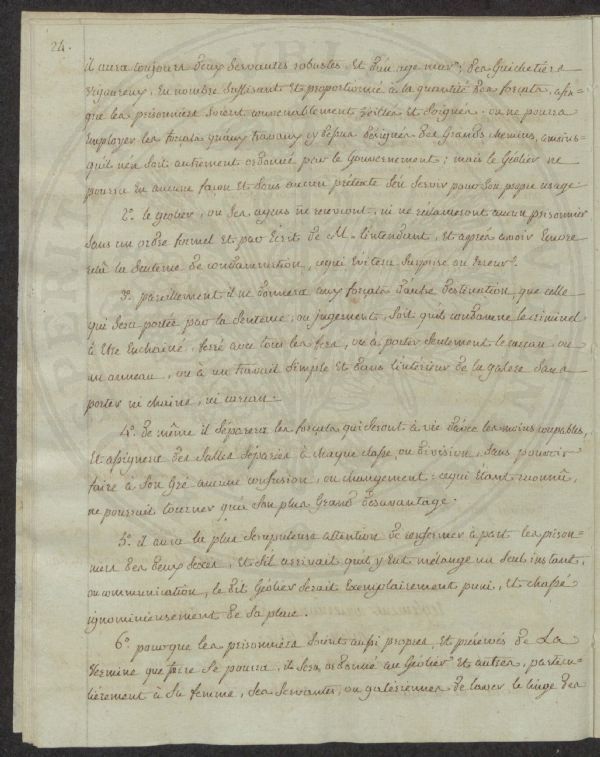 24.
il aura toujours deux servantes robustes et d'un age mur; des Guichetiers
vigoureux, en nombre suffisant et proportionné à la quantité des forçats, afin=
que les prisonniers soient convenablement veillés et soignés. on ne pourra
employer les forçats qu'aux travaux cy dessus désignés des grands chemins, amoins=
qu'il n'en soit autrement ordonné par le Gouvernement; mais le Géolier ne
pourra en aucune façon et sous aucun prétexte s'en servir pour son propre usage
2.° le géolier, ou ses agens ne recevront, ni ne réclameront aucun prisonnier
sans un ordre formel et par écrit de M. l'intendant, et après avoir encore
relu la sentence de condamnation, cequi évitera surprise ou erreur.
3.° pareillement il ne donnera aux forçats d'autre destination, que celle
qui sera portée par la sentence, ou jugement, soit qu'ils condamne le criminel
à être enchainé, ferré avec tous les fers, ou à porter seulement le carcan, ou
un anneau, ou à un travail simple et dans l'intérieur de la galere sans
porter ni chaine, ni carcan.
4.° de même il séparera les forçats qui seront à vie d'avec les moins coupables,
et assignera des salles séparées à chaque classe, ou division, sans pouvoir
faire à son gré aucune confusion, ou changement: cequi étant reconnû,
ne pourrait tourner qu'à son plus grand désavantage.
5.° il aura la plus scrupuleuse attention de renfermer à part les prison=
niers des deux sexes, et s'il arrivait qu'il y eut mélange un seul instant,
ou communication, le dit Géolier serait exemplairement puni, et chassé
ignominieusement de sa place.
6.° pour que les prisonniers soient aussi propres, et préservés de La
vermine que faire se pourra, il sera ordonné au Géolier et autres, particu=
lièrement à sa femme, ses servantes, ou galériennes de laver le linge des